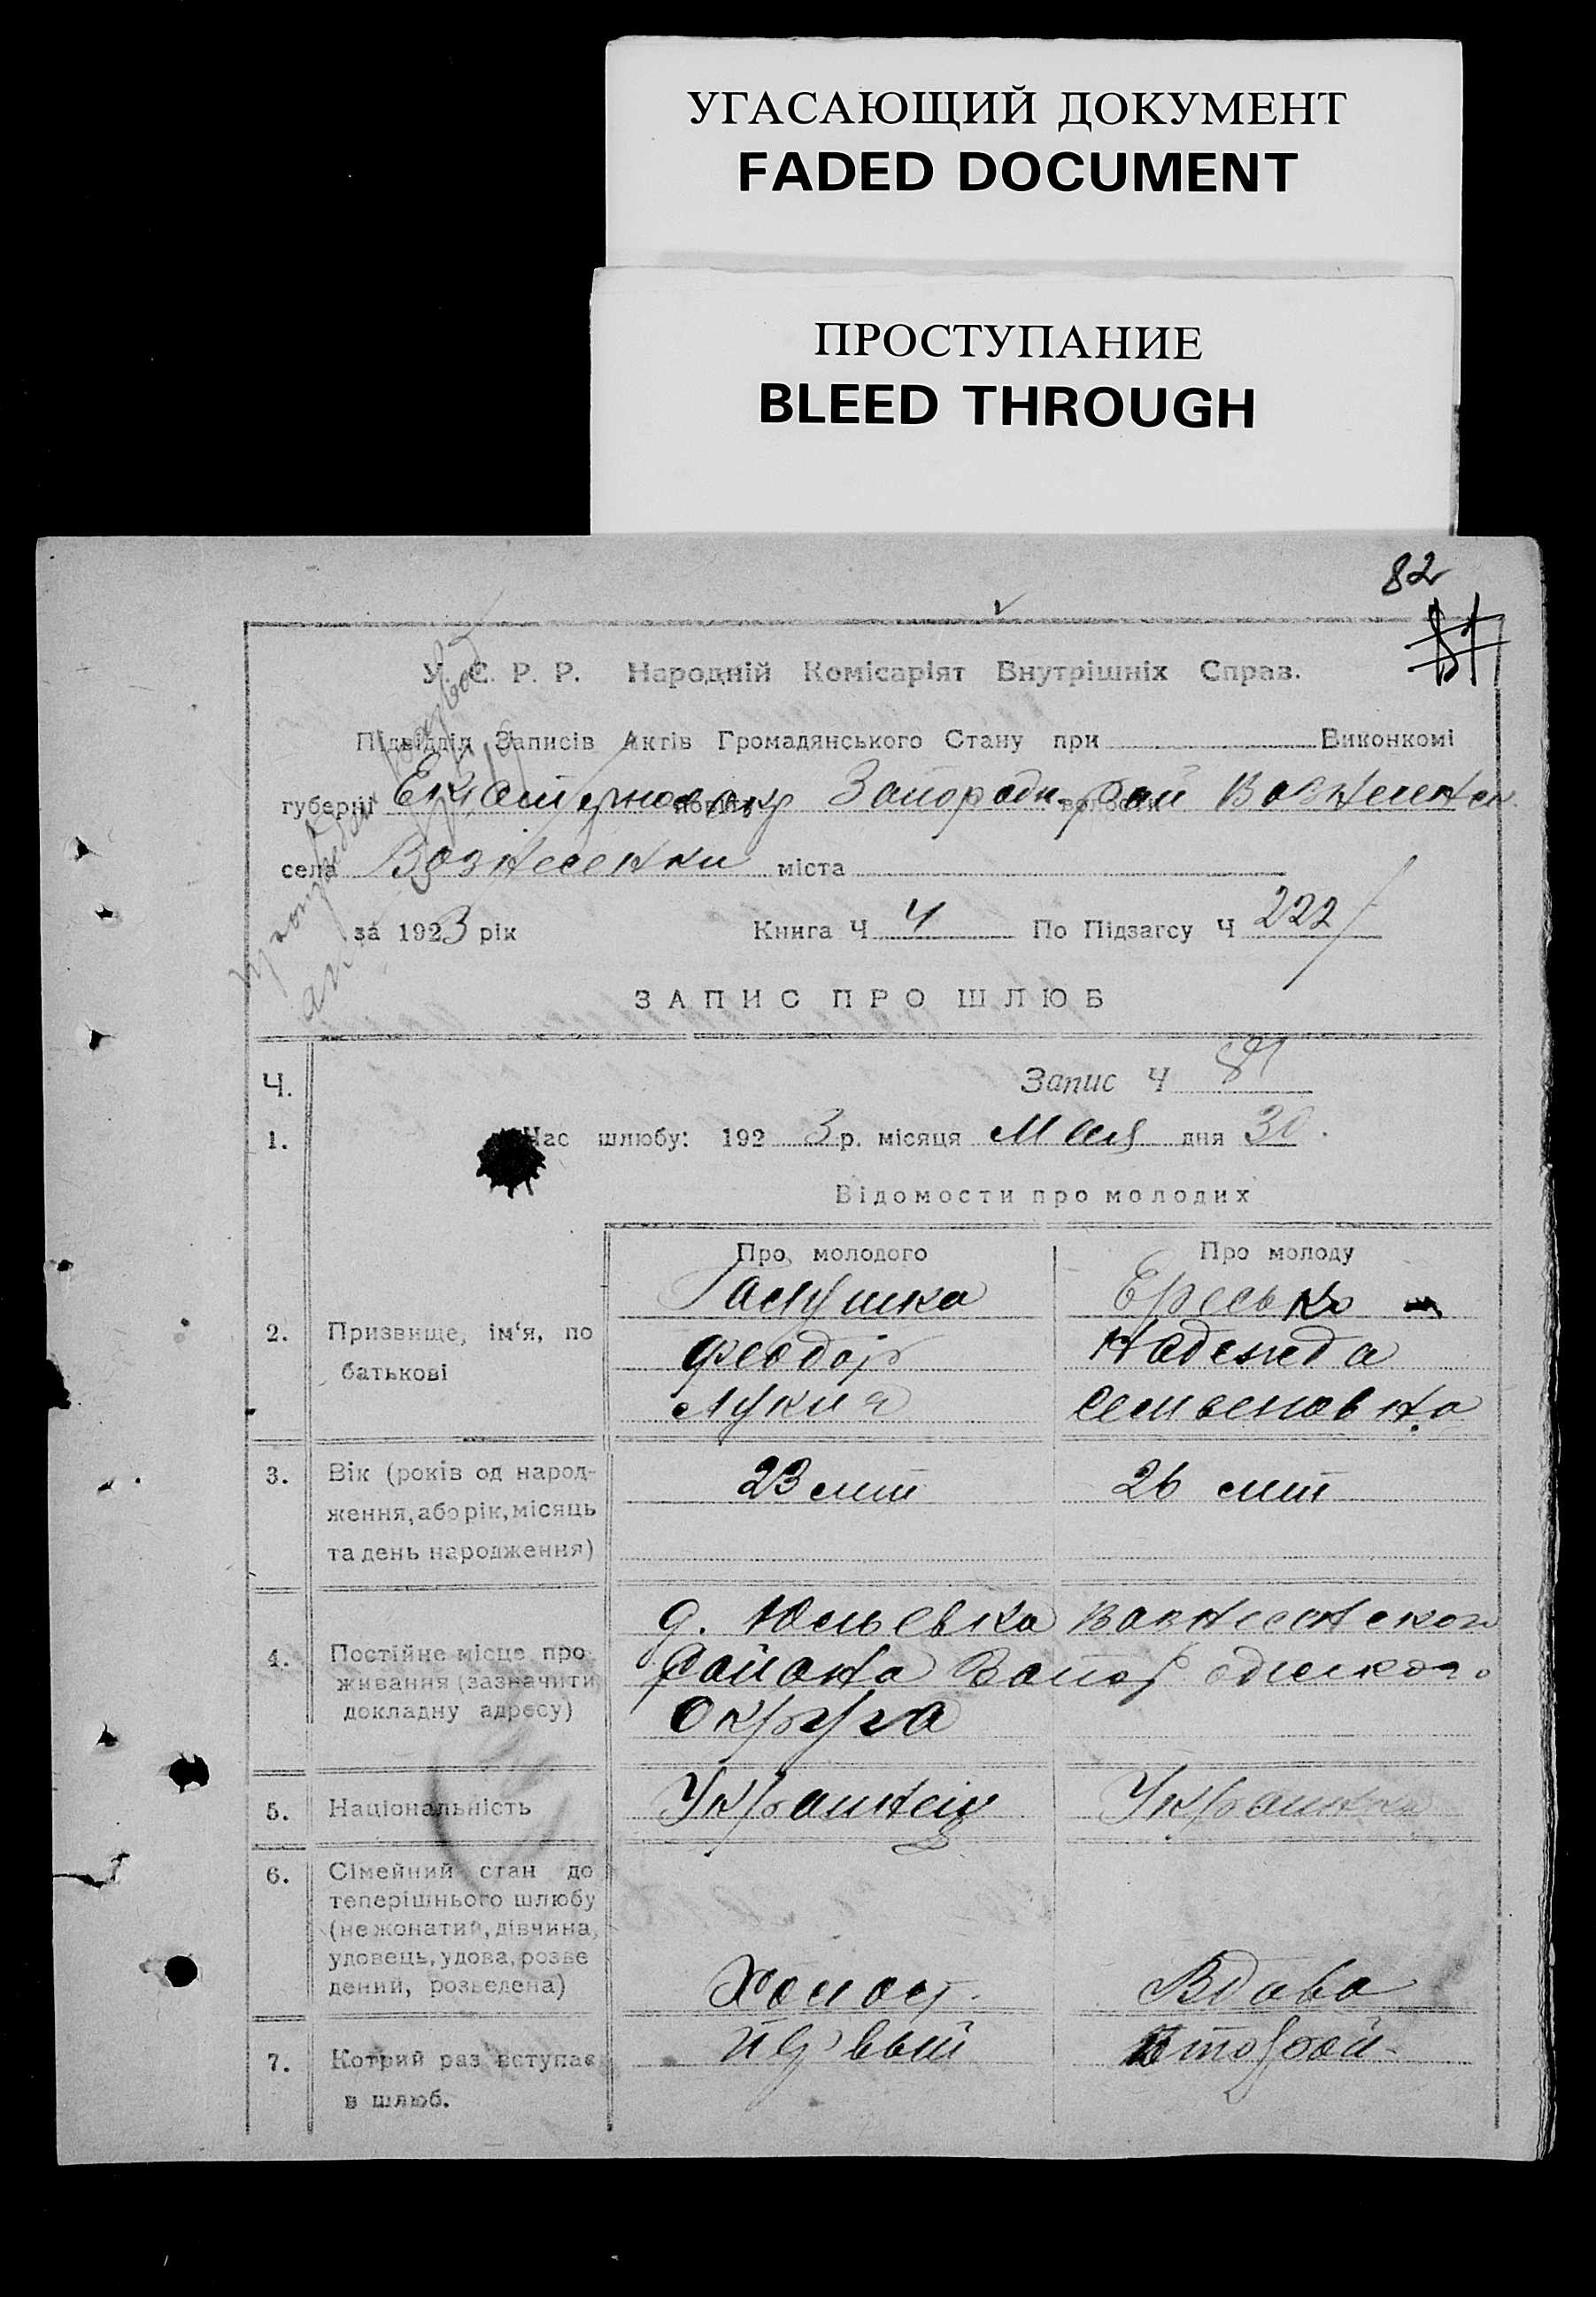 УГАСАЮЩИЙ ДОКУМЕНТ
FADED DOCUMENT
ПРОСТУПАНИЕ
BLEED THROUGH
82
У. С. Р. Р. Народній Комісаріят Внутрішніх Справ.
Підвідділ Записів Актів Громадянського Стану при Виконкомі
губернії повіту волости рай Вознесенск
села Вознесенки міста
за 1923 рік Книга Ч 4 По Підзагсу Ч 222
ЗАПИС ПРО ШЛЮБ
Ч. Запис Ч 81
1. Час шлюбу: 1923 р. місяця Мая дня 30.
Відомости про молодих
Про молодого Про молоду
Ересько
2. Призвище, ім'я, по батькові
Феодор Надежда
Лукич Семьеновна
3. Вік (років од народ-
ження, або рік, місяць
та день народження)
23 лет 26 лет
4. Постійне місце про-
живання (зазначити
докладну адресу)
д. Юльевка Вознесенского
района Запорожского
округа
5. Національність Украинец Украинка
6. Сімейний стан до
теперішнього шлюбу
(не жонатий, дівчина,
удовець, удова, розве
дений, розведена)
Холост. Вдова
7. Котрий раз вступає
в шлюб.
первый второй